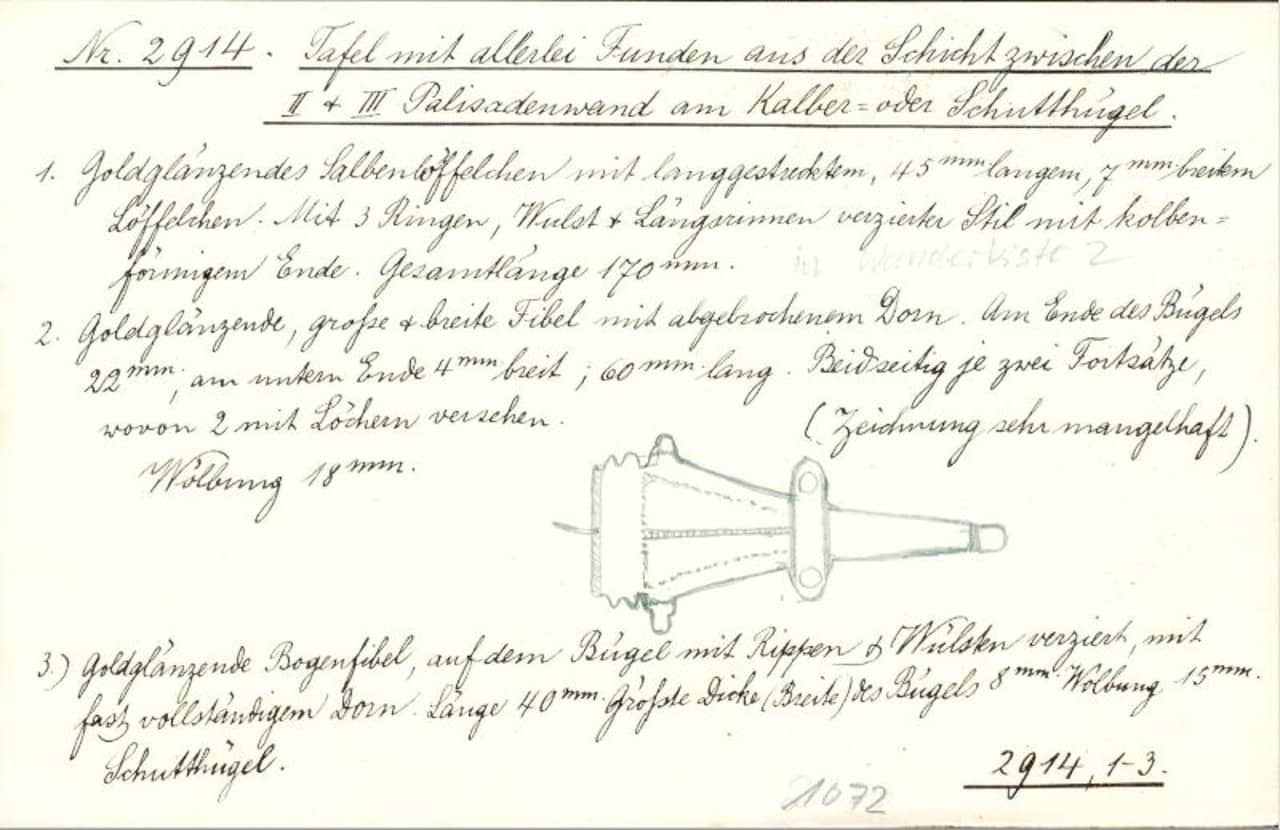 Nr. 2914. Tafel mit allerlei Funden aus der Schicht zwischen der
II & III Palisadenwand am Kalber= oder Schutthügel.
1. Goldglänzendes Salbenlöffelchen mit langgestrecktem, 45 mm. langem, 7 mm. breitem
Löffelchen. Mit 3 Ringen, Wulst & Längsrinnen verzierter Stil mit kolben=
förmigem Ende. Gesamtlänge 170 mm. in Wunderkiste 2
2. Goldglänzende, große & breite Fibel mit abgebrochenem Dorn. Am Ende des Bügels
22 mm., am untern Ende 4 mm breit; 60 mm. lang. Beidseitig je zwei Fortsätze,
wovon 2 mit Löchern versehen. (Zeichnung sehr mangelhaft).
Wölbung 18 mm.
3.) Goldglänzende Bogenfibel, auf dem Bügel mit Rippen & Wülsten verziert, mit
fast vollständigem Dorn. Länge 40 mm. Größte Dicke (Breite) des Bügels 8 mm. Wölbung 15 mm.
Schutthügel.
2914, 1-3.
1072